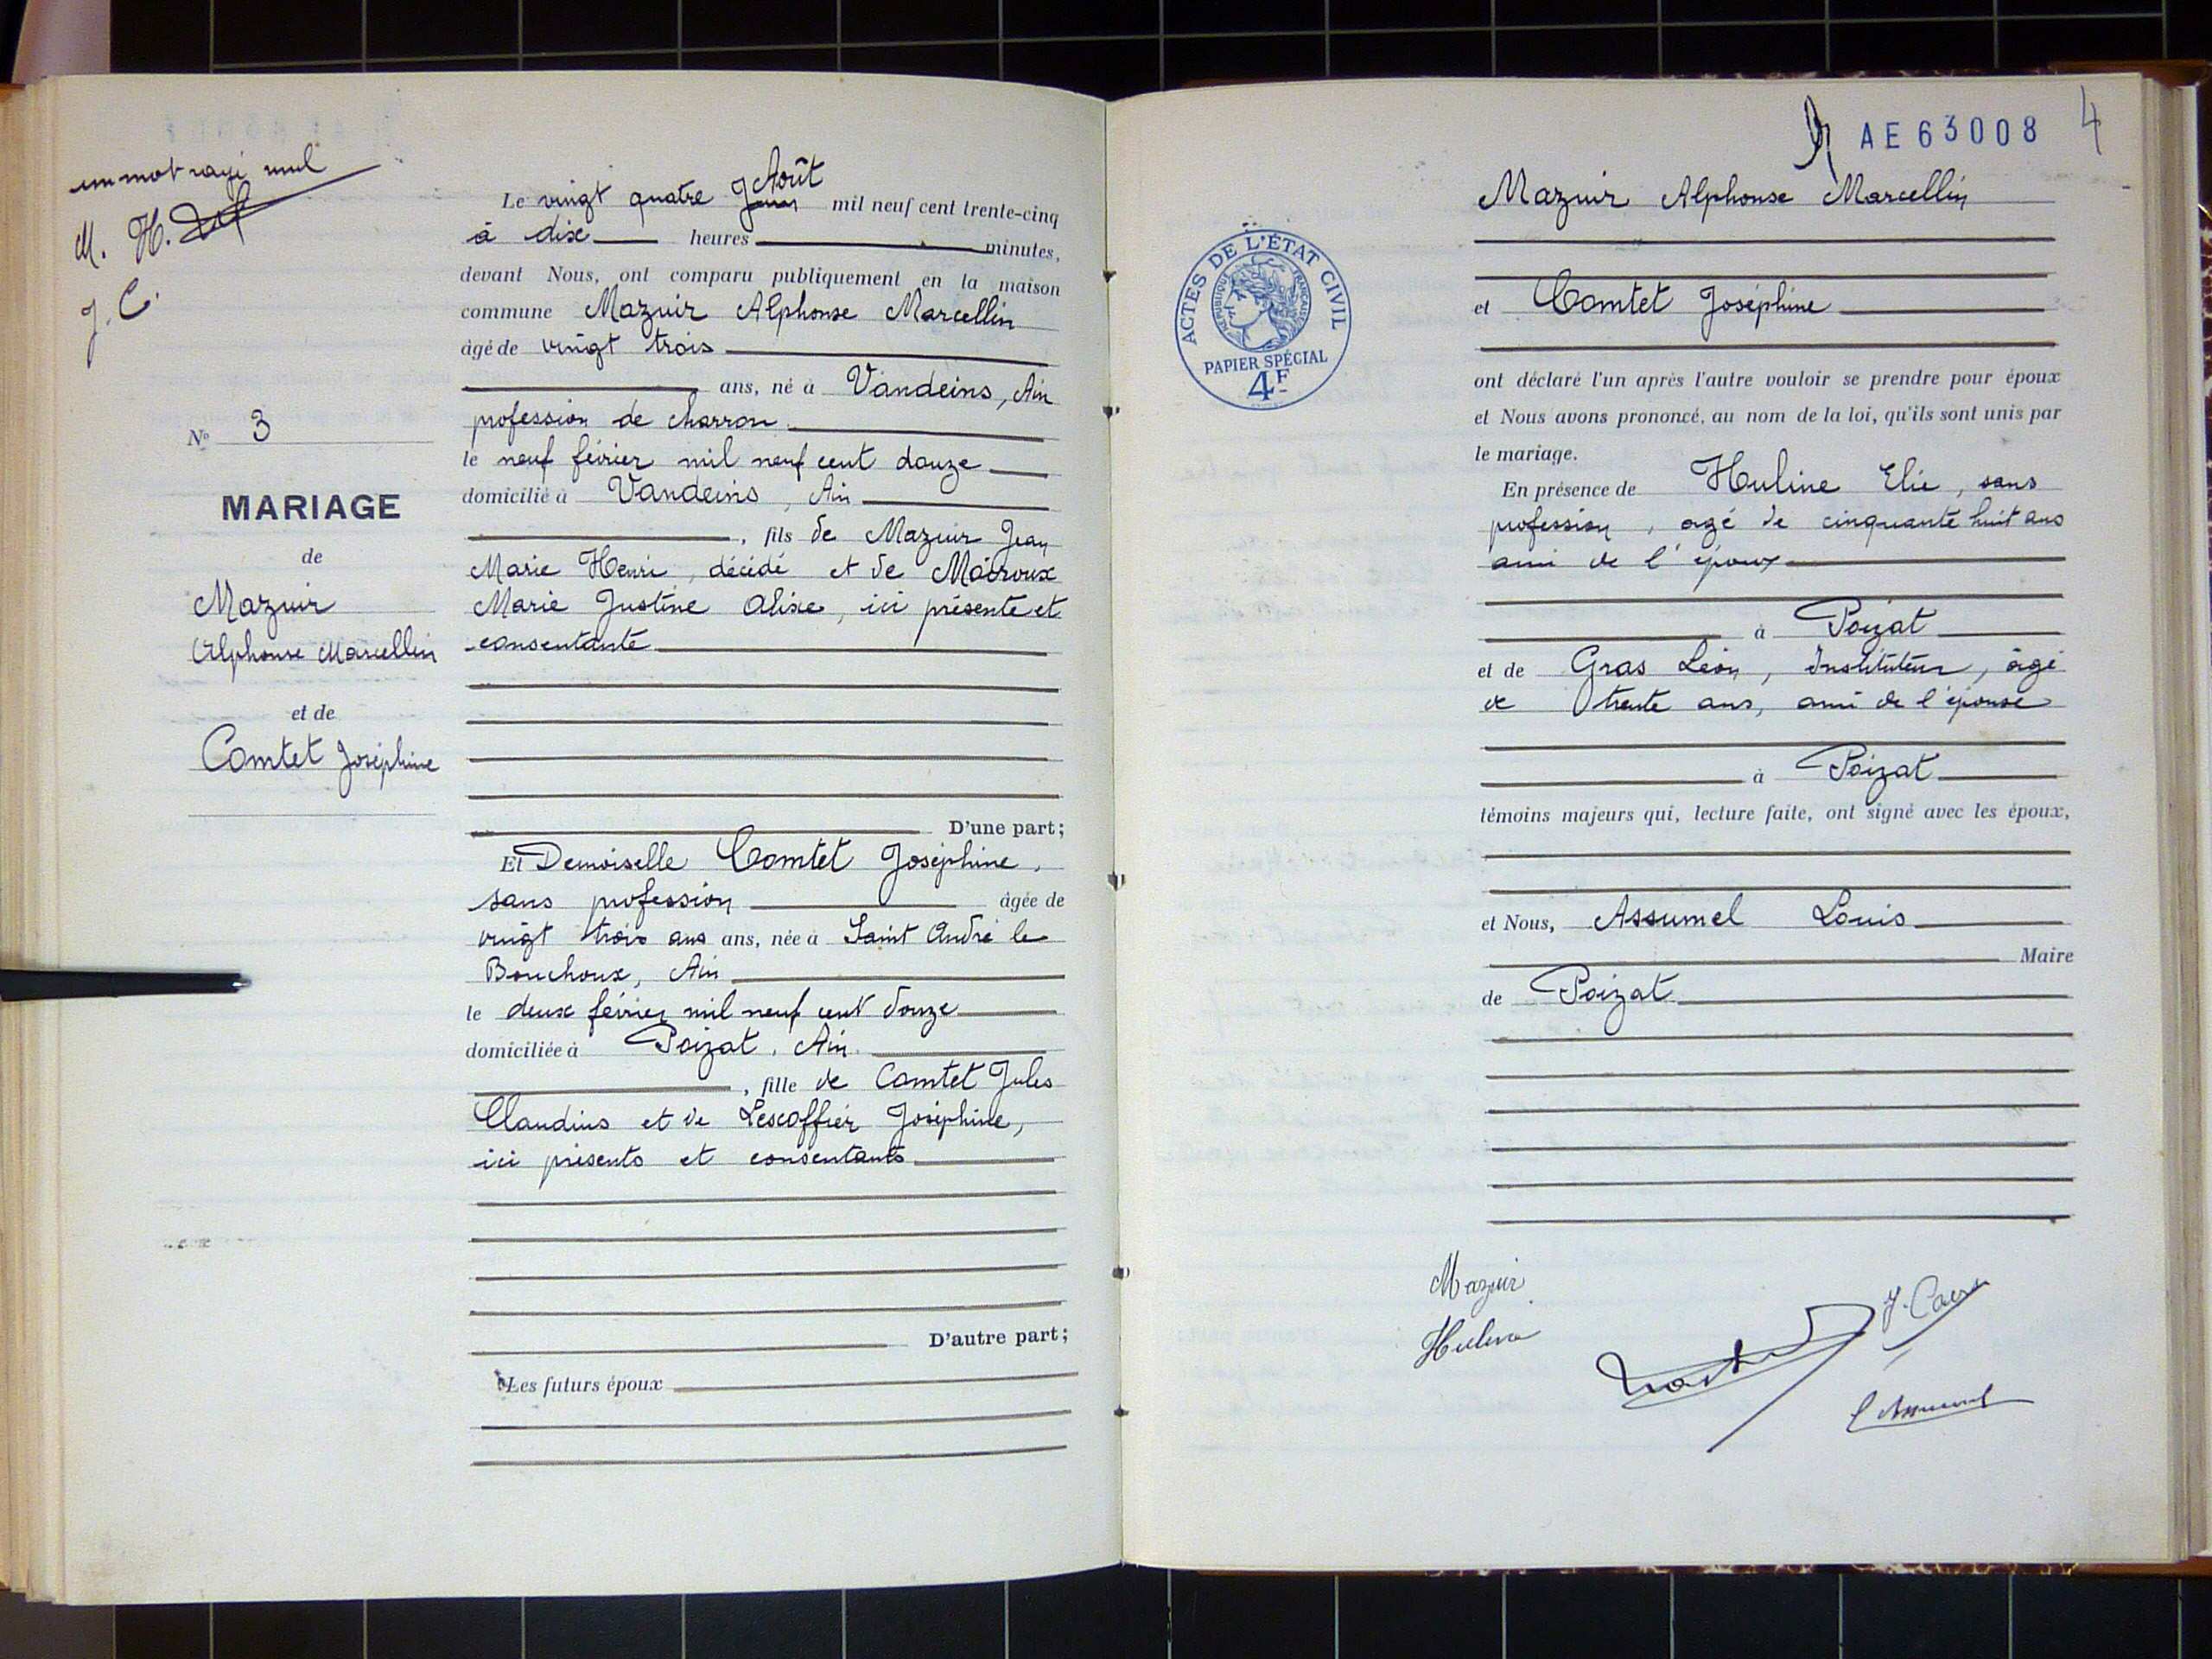 un mot rayé nul
M. H.
J. C.
N° 3
MARIAGE
de
Mazuir
Alphonse Marcellin
et de
Comtet Joséphine
Août
Le vingt quatre mil neuf cent trente-cinq
à dix heures minutes,
devant Nous, ont comparu publiquement en la maison
commune Mazuir Alphonse Marcellin
âgé de vingt trois
ans, né à Vandeins, Ain
profession de charron.
le neuf février mil neuf cent douze
domicilié à Vandeins, Ain
, fils de Mazuir Jean
Marie Henri, décédé et de Maîroux
Marie Justine Alixe, ici présente et
consentante
D'une part;
Et Demoiselle Comtet Joséphine,
sans profession âgée de
vingt trois ans ans, née à Saint André le
Bouchoux, Ain
le deux février mil neuf cent douze
domiciliée à Poizat, Ain.
, fille de Comtet Jules
Claudius et de Lescoffier Joséphine,
ici présents et consentants
D'autre part;
Les futurs époux
AE 63008 4
ACTES DE L'ÉTAT CIVIL
RÉPUBLIQUE FRANÇAISE
PAPIER SPÉCIAL
4F
Mazuir Alphonse Marcellin
et Comtet Joséphine
ont déclaré l'un après l'autre vouloir se prendre pour époux
et Nous avons prononcé, au nom de la loi, qu'ils sont unis par
le mariage.
En présence de Huline Elie, sans
profession, agé de cinquante huit ans
ami de l'époux
à Poizat
et de Gras Léon, Instituteur, âgé
de trente ans, ami de l'épouse
à Poizat
témoins majeurs qui, lecture faite, ont signé avec les époux,
et Nous, Assumel Louis
Maire
de Poizat
Mazuir
Huline